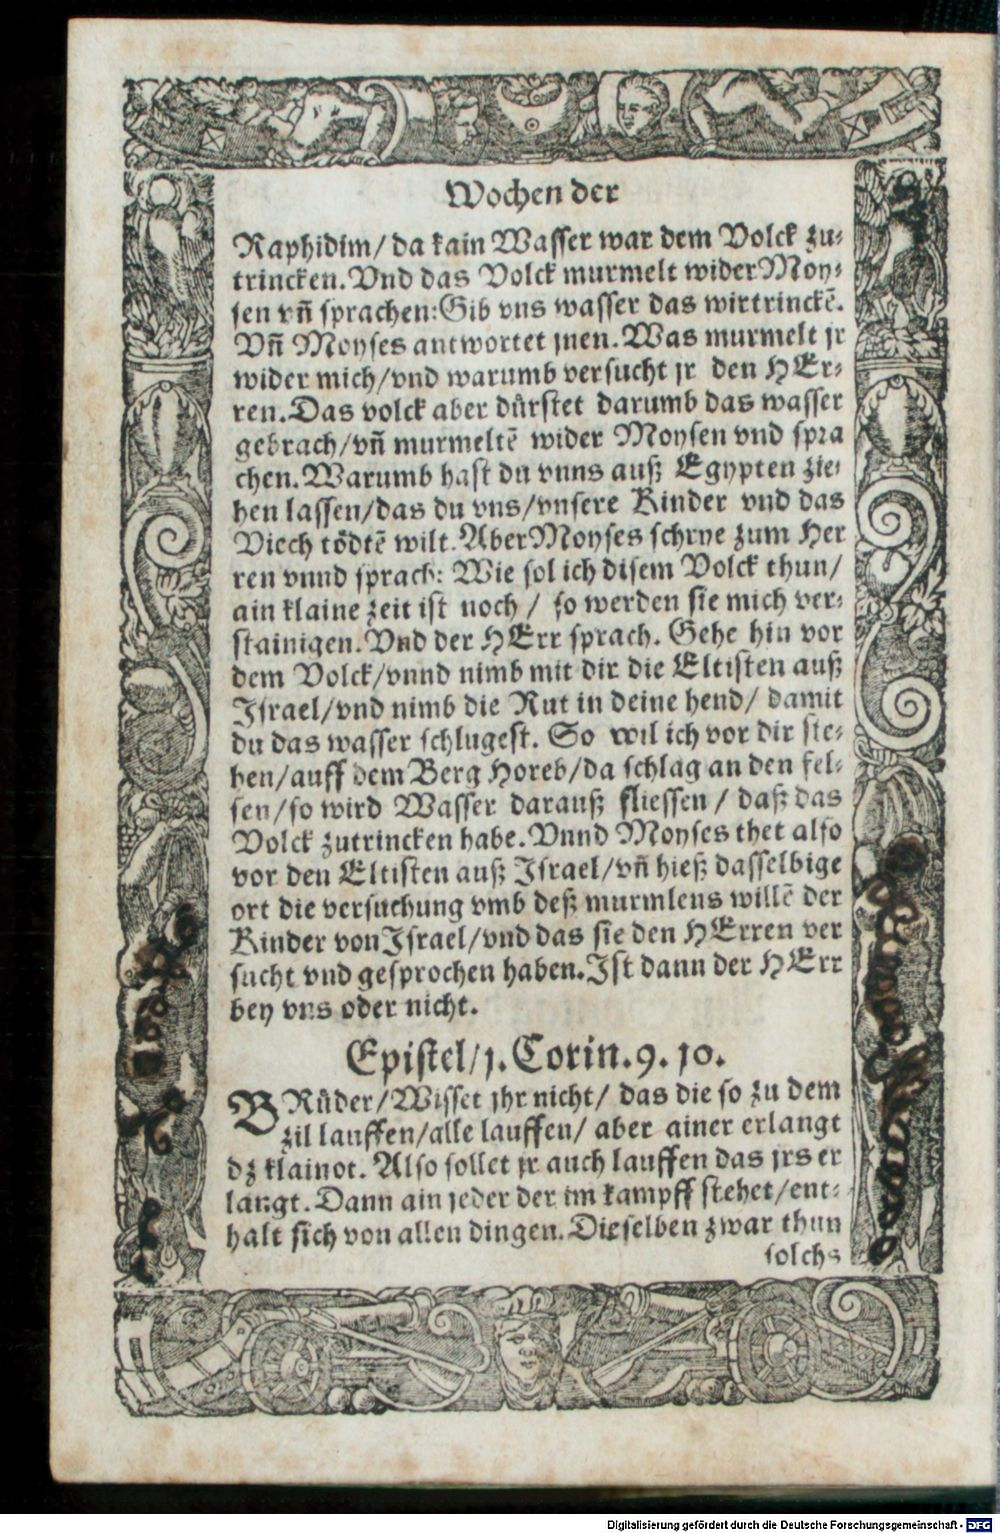 Wochen der
Raphidim/ da kain Wasser war dem Volck zu⸗
trincken. Vnd das Volck murmelt wider Moy⸗
sen vñ sprachen: Gib vns wasser das wir trinckẽ.
Vñ Moyses antwortet jnen. Was murmelt jr
wider mich/ vnd warumb versucht jr den HEr⸗
ren. Das volck aber dürstet darumb das wasser
gebrach/ vñ murmeltẽ wider Moysen vnd spra
chen. Warumb hast du vnns auß Egypten zie⸗
hen lassen/ das du vns/ vnsere Kinder vnd das
Viech tödtẽ wilt. Aber Moyses schrye zum Her
ren vnnd sprach: Wie sol ich disem Volck thun/
ain klaine zeit ist noch / so werden sie mich ver⸗
stainigen. Vnd der HErr sprach. Gehe hin vor
dem Volck/ vnnd nimb mit dir die Eltisten auß
Israel/ vnd nimb die Rut in deine hend/ damit
du das wasser schlugest. So wil ich vor dir ste⸗
hen/ auff dem Berg Horeb/ da schlag an den fel⸗
sen/ so wird Wasser darauß fliessen / daß das
Volck zutrincken habe. Vnnd Moyses thet also
vor den Eltisten auß Israel/ vñ hieß dasselbige
ort die versuchung vmb deß murmlens willẽ der
Kinder von Israel/ vnd das sie den HErren ver
sucht vnd gesprochen haben. Ist dann der HErr
bey vns oder nicht.
Epistel/ j. Corin. 9. jo.
BRüder/ Wisset jhr nicht/ das die so zu dem
zil lauffen/ alle lauffen/ aber ainer erlangt
dz klainot. Also sollet jr auch lauffen das jrs er
langt. Dann ain jeder der im kampff stehet/ ent⸗
halt sich von allen dingen. Dieselben zwar thun
solchs
Digitalisierung gefördert durch die Deutsche Forschungsgemeinschaft - DFG